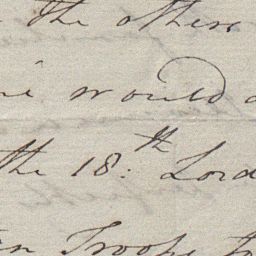 the others
would
the 18:th Lord
Troops